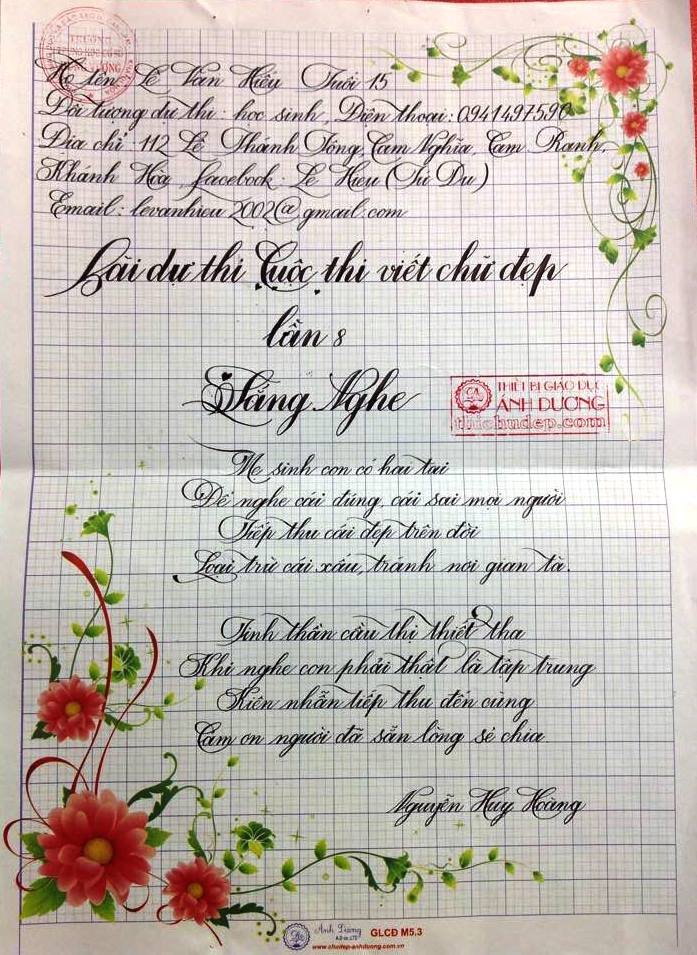 Họ tên Lê Văn Hiếu Tuổi 15
Đối tượng dự thi : học sinh, Điện thoại : 0941497590
Địa chỉ : 112 Lê Thánh Tông, Cam Nghĩa, Cam Ranh,
Khánh Hòa, facebook : Lê Hieu (Tử Du)
Email : levanhieu2002@gmail.com
Bài dự thi Cuộc thi viết chữ đẹp
lần 8
Lắng Nghe
THIẾT BỊ GIÁO DỤC
ÁNH DƯƠNG
thichudep.com
Mẹ sinh con có hai tai
Để nghe cái đúng, cái sai mọi người
Tiếp thu cái đẹp trên đời
Loại trừ cái xấu, tránh nơi gian tà.
Tinh thần cầu thị thiết tha
Khi nghe con phải thật là tập trung
Kiên nhẫn tiếp thu đến cùng
Cám ơn người đã sẵn lòng sẻ chia
Nguyễn Huy Hoàng
Ánh Dương
GLCĐ M5.3
www.chudep-anhduong.com.vn